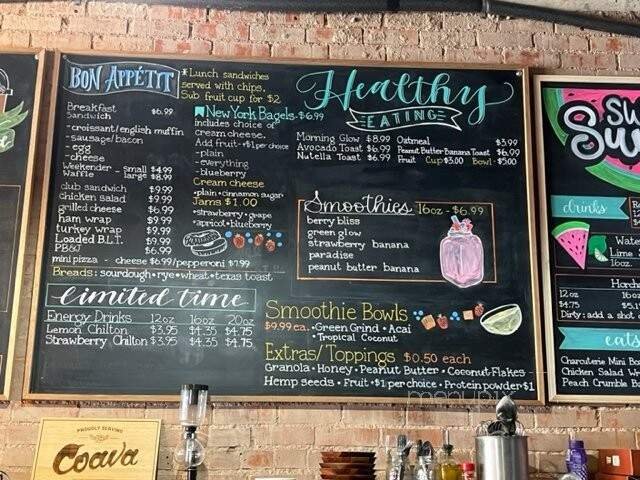 BON APPÉTIT
*Lunch sandwiches
served with chips.
Sub fruit cup for $2
Breakfast Sandwich $6.99
-croissant/english muffin
-sausage/bacon
-egg
-cheese
Weekender Waffle - small $4.99
large $8.99
club sandwich $9.99
chicken salad $9.99
grilled cheese $6.99
ham wrap $9.99
turkey wrap $9.99
Loaded B.L.T. $9.99
PB&J $6.99
mini pizza - cheese $6.99/pepperoni $7.99
Breads: sourdough • rye • wheat • texas toast
New York Bagels-$6.99
includes choice of
cream cheese.
Add fruit-$1 per choice
-plain
-everything
-blueberry
Cream cheese
•plain •cinnamon sugar
Jams $1.00
•strawberry •grape
•apricot •blueberry
limited time
Energy Drinks 12oz 16oz 20oz
Lemon Chilton $3.95 $4.35 $4.75
Strawberry Chilton $3.95 $4.35 $4.75
Healthy
EATING
Morning Glow $8.99
Avocado Toast $6.99
Nutella Toast $6.99
Oatmeal $3.99
Peanut Butter-Banana Toast $6.99
Fruit Cup $3.00 Bowl-$5.00
Smoothies 16oz - $6.99
berry bliss
green glow
strawberry banana
paradise
peanut butter banana
Smoothie Bowls
$9.99 ea. •Green Grind •Acai
•Tropical Coconut
Extras/Toppings $0.50 each
Granola • Honey • Peanut Butter • Coconut Flakes -
Hemp seeds • Fruit •$1 per choice • Protein powder•$1
drinks
12oz
$4.75
16oz
Dirty: add a shot
eats
Charcuterie Mini
Chicken Salad
Peach Crumble
PROUDLY SERVING
Coava
menupix